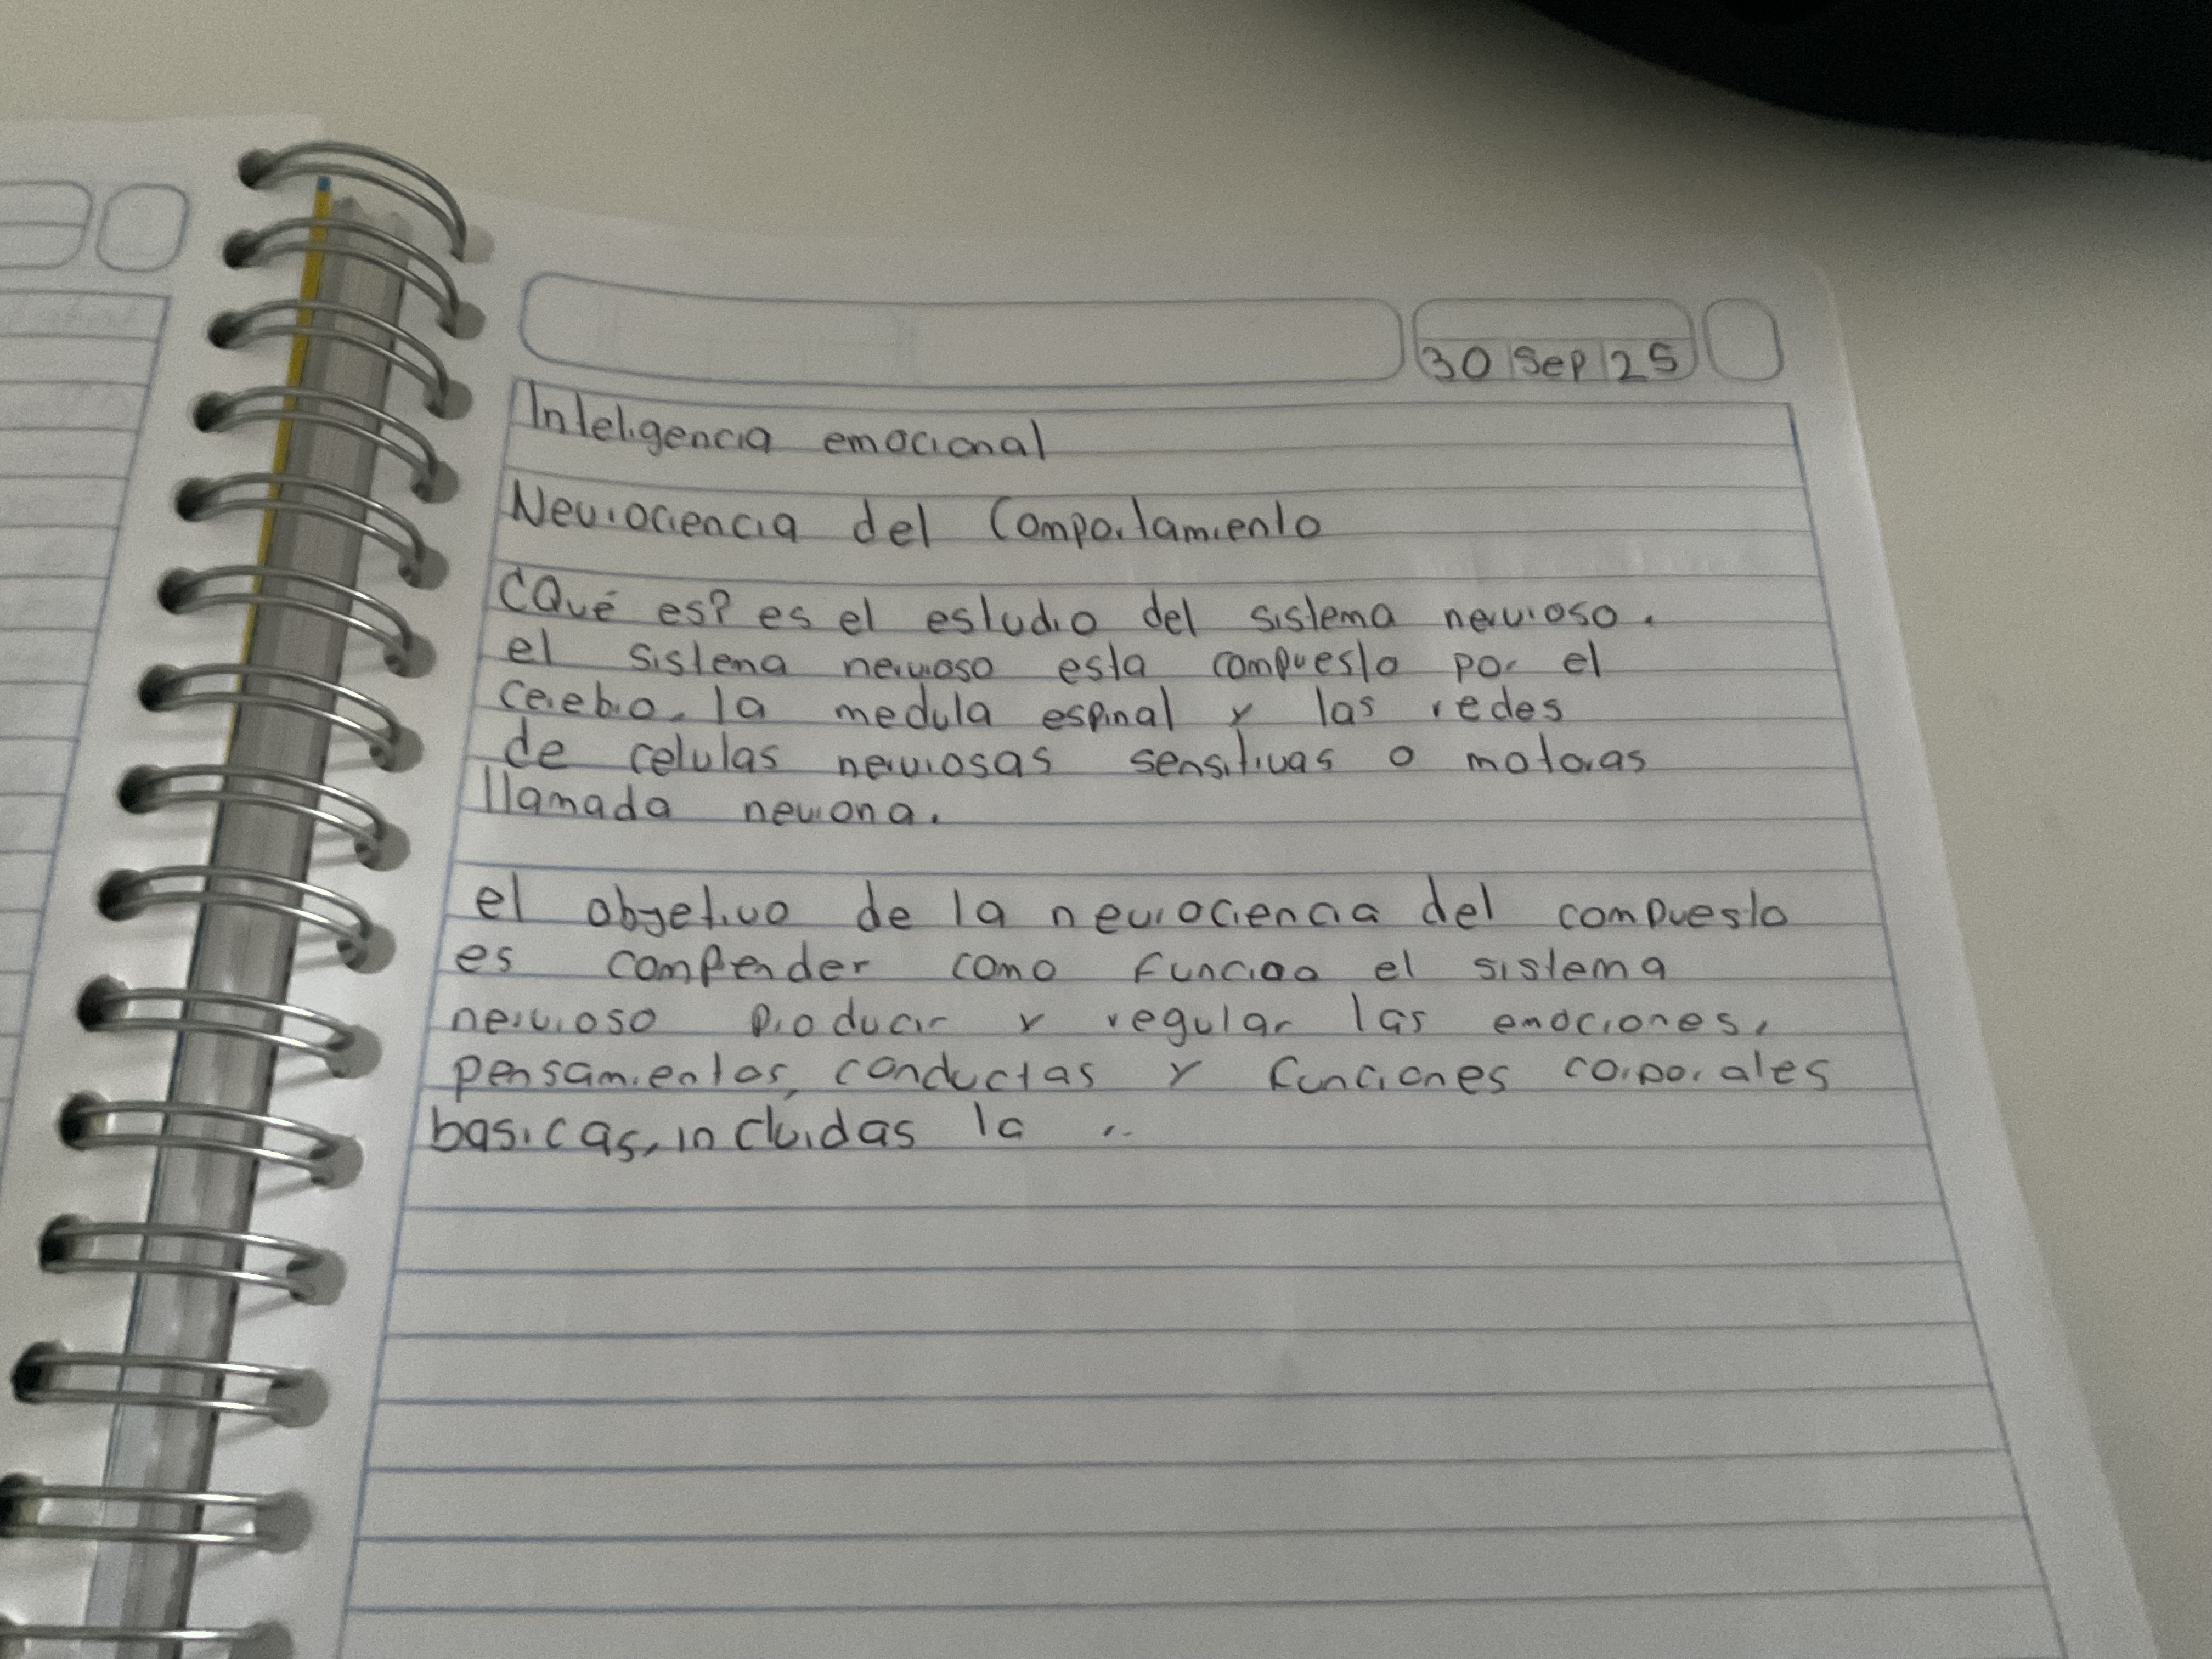 30 Sep 25
Inteligencia emocional
Neurociencia del Comportamiento
¿Qué es? es el estudio del sistema nervioso.
el sistema nervioso esta compuesto por el
cerebro, la medula espinal y las redes
de celulas nerviosas sensitivas o motoras
llamada neurona.
el objetivo de la neurociencia del compuesto
es compender como funciaa el sistema
nervioso producir y regular las emociones,
pensamientos, conductas y funciones corporales
basicas, incluidas la ..